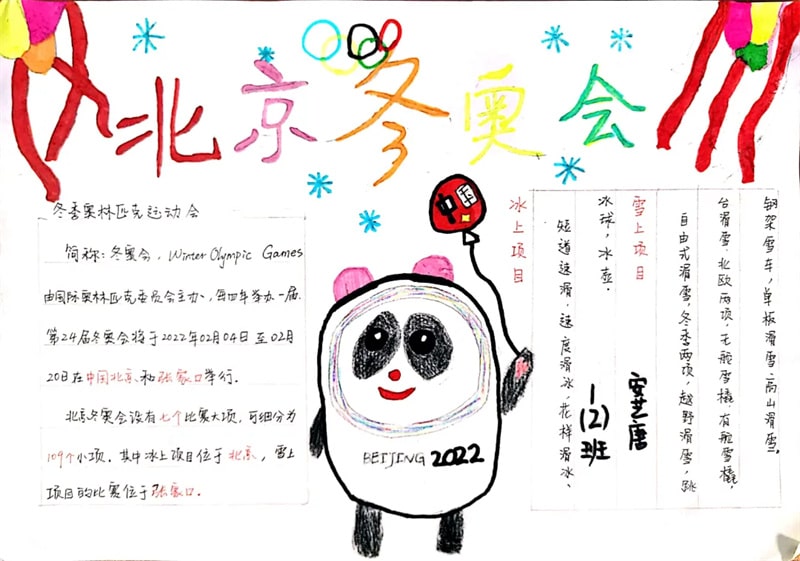 北京冬奥会
冬季奥林匹克运动会
简称：冬奥会，Winter Olympic Games
由国际奥林匹克委员会主办，每四年举办一届.
第24届冬奥会将于2022年02月04日至02月
20日在中国北京和张家口举行.
北京冬奥会设有七个比赛大项，可细分为
109个小项.其中冰上项目位于北京，雪上
项目的比赛位于张家口.
中国
BEIJING 2022
冰上项目
短道速滑、速度滑冰、花样滑冰、
冰球，冰壶.
雪上项目
自由式滑雪，冬季两项，越野滑雪，跳
台滑雪，北欧两项，无舵雪橇，有舵雪橇，
钢架雪车，单板滑雪，高山滑雪.
1(2)班
安芝唐